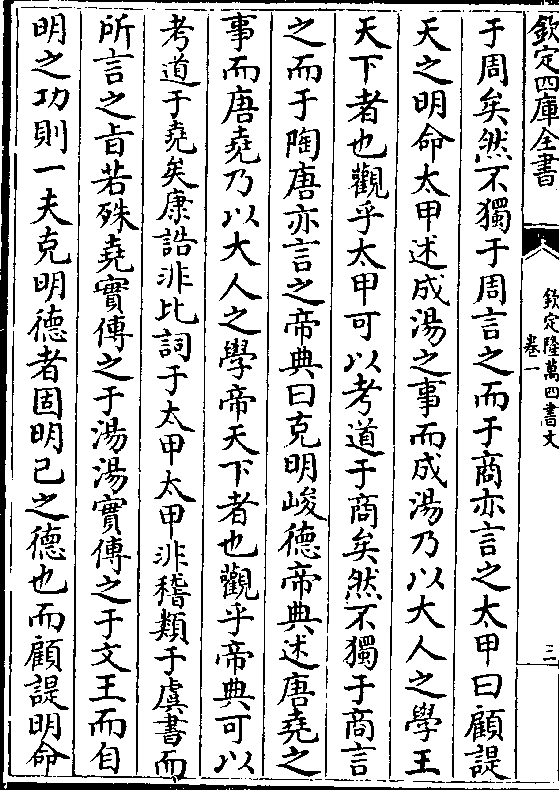 欽定四庫全書
欽定隆萬四書文
卷一
三
于周矣然不獨于周言之而于商亦言之太甲曰顧諟
天之明命太甲述成湯之事而成湯乃以大人之學王
天下者也觀乎太甲可以考道于商矣然不獨于商言
之而于陶唐亦言之帝典曰克明峻德帝典述唐堯之
事而唐堯乃以大人之學帝天下者也觀乎帝典可以
考道于堯矣康誥非比詞于太甲太甲非稽類于虞書而
所言之旨若殊堯實傳之于湯湯實傳之于文王而自
明之功則一夫克明德者固明己之德也而顧諟明命